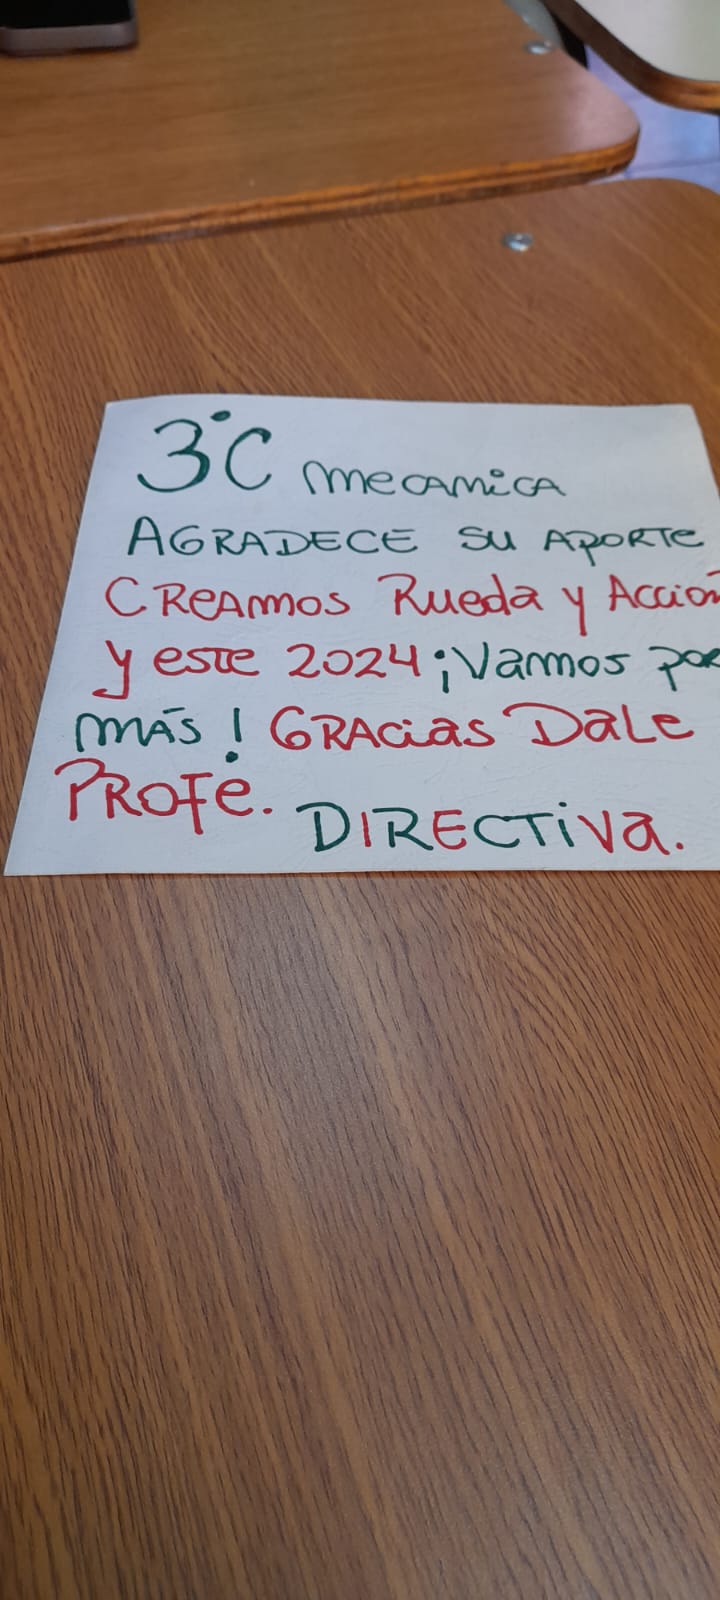 3°C mecanica
AGRADECE SU APORTE
CREAMOS Rueda y Acción
y este 2024 ¡Vamos por
MÁS! GRACias DaLe
PROFe.
DIRECTiva.